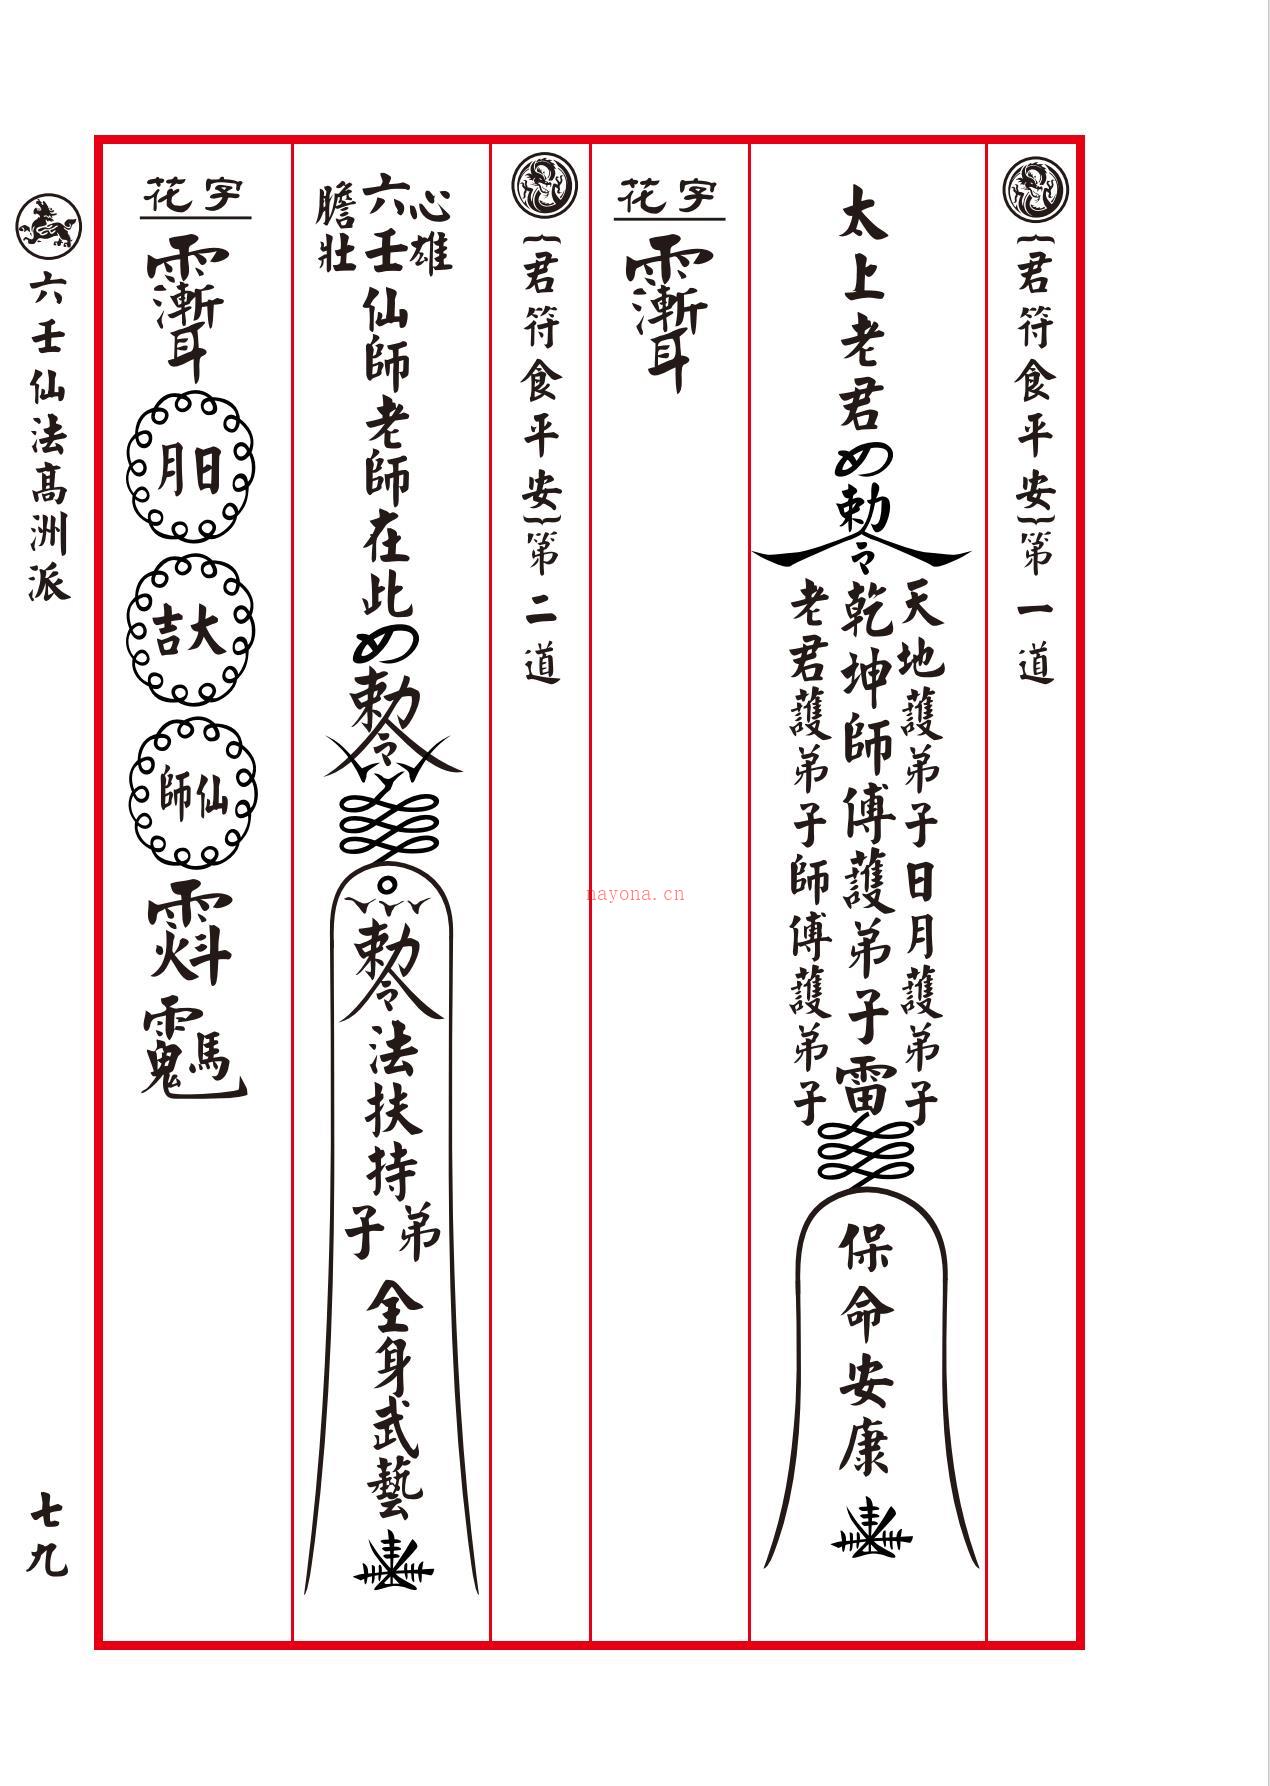 ︷君符食平安︸第一道
太上老君
勅令
天地護弟子日月護弟子
乾坤師傅護弟子雷
老君護弟子師傅護弟子
保命安康
花字
︷君符食平安︸第二道
心雄
六壬仙師老師在此
膽壯
勅令
勅令
法扶持
弟子
全身武藝
花字
日月
大吉
仙師
六壬仙法高洲派
七九
nayona.cn